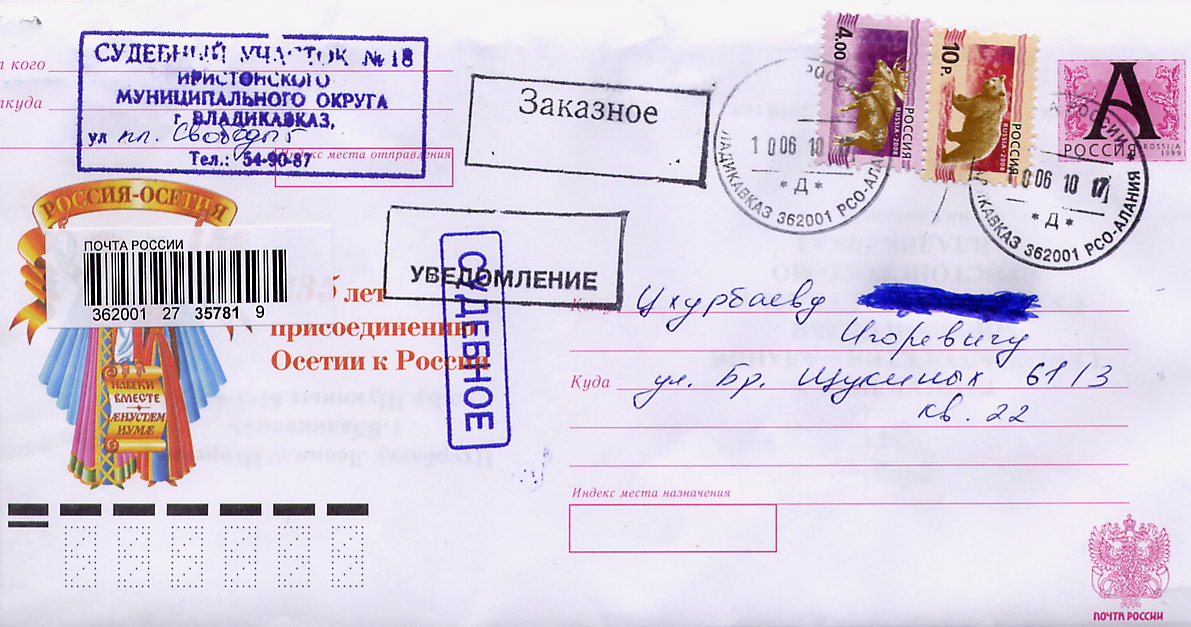 СУДЕБНЫЙ УЧАСТОК № 18
ИРИСТОНСКОГО
МУНИЦИПАЛЬНОГО ОКРУГА
г. ВЛАДИКАВКАЗ,
ул пл. Свободы 5
Тел.: 54-90-87
т кого
ткуда
Индекс места отправления
Заказное
4.00
РОССИЯ
RUSSIA·2008
10 Р.
РОССИЯ
RUSSIA·2008
А
РОССИЯ
ROSSIJA
1999
10 06 10
*Д*
ЛАДИКАВКАЗ 362001 РСО-АЛАН
006 10 17
*Д*
КАВКАЗ 362001 РСО-АЛАНИЯ
РОССИЯ-ОСЕТИЯ
ПОЧТА РОССИИ
362001 27 35781 9
235 лет
присоединению
Осетии к России
НАВЕКИ
ВМЕСТЕ
ÆНУСТÆМ
ИУМÆ
УВЕДОМЛЕНИЕ
СУДЕБНОЕ
Кому Цхурбаеву
Игоревичу
Куда ул. Бр. Щукиных 61/3
кв. 22
Индекс места назначения
ПОЧТА РОССИИ